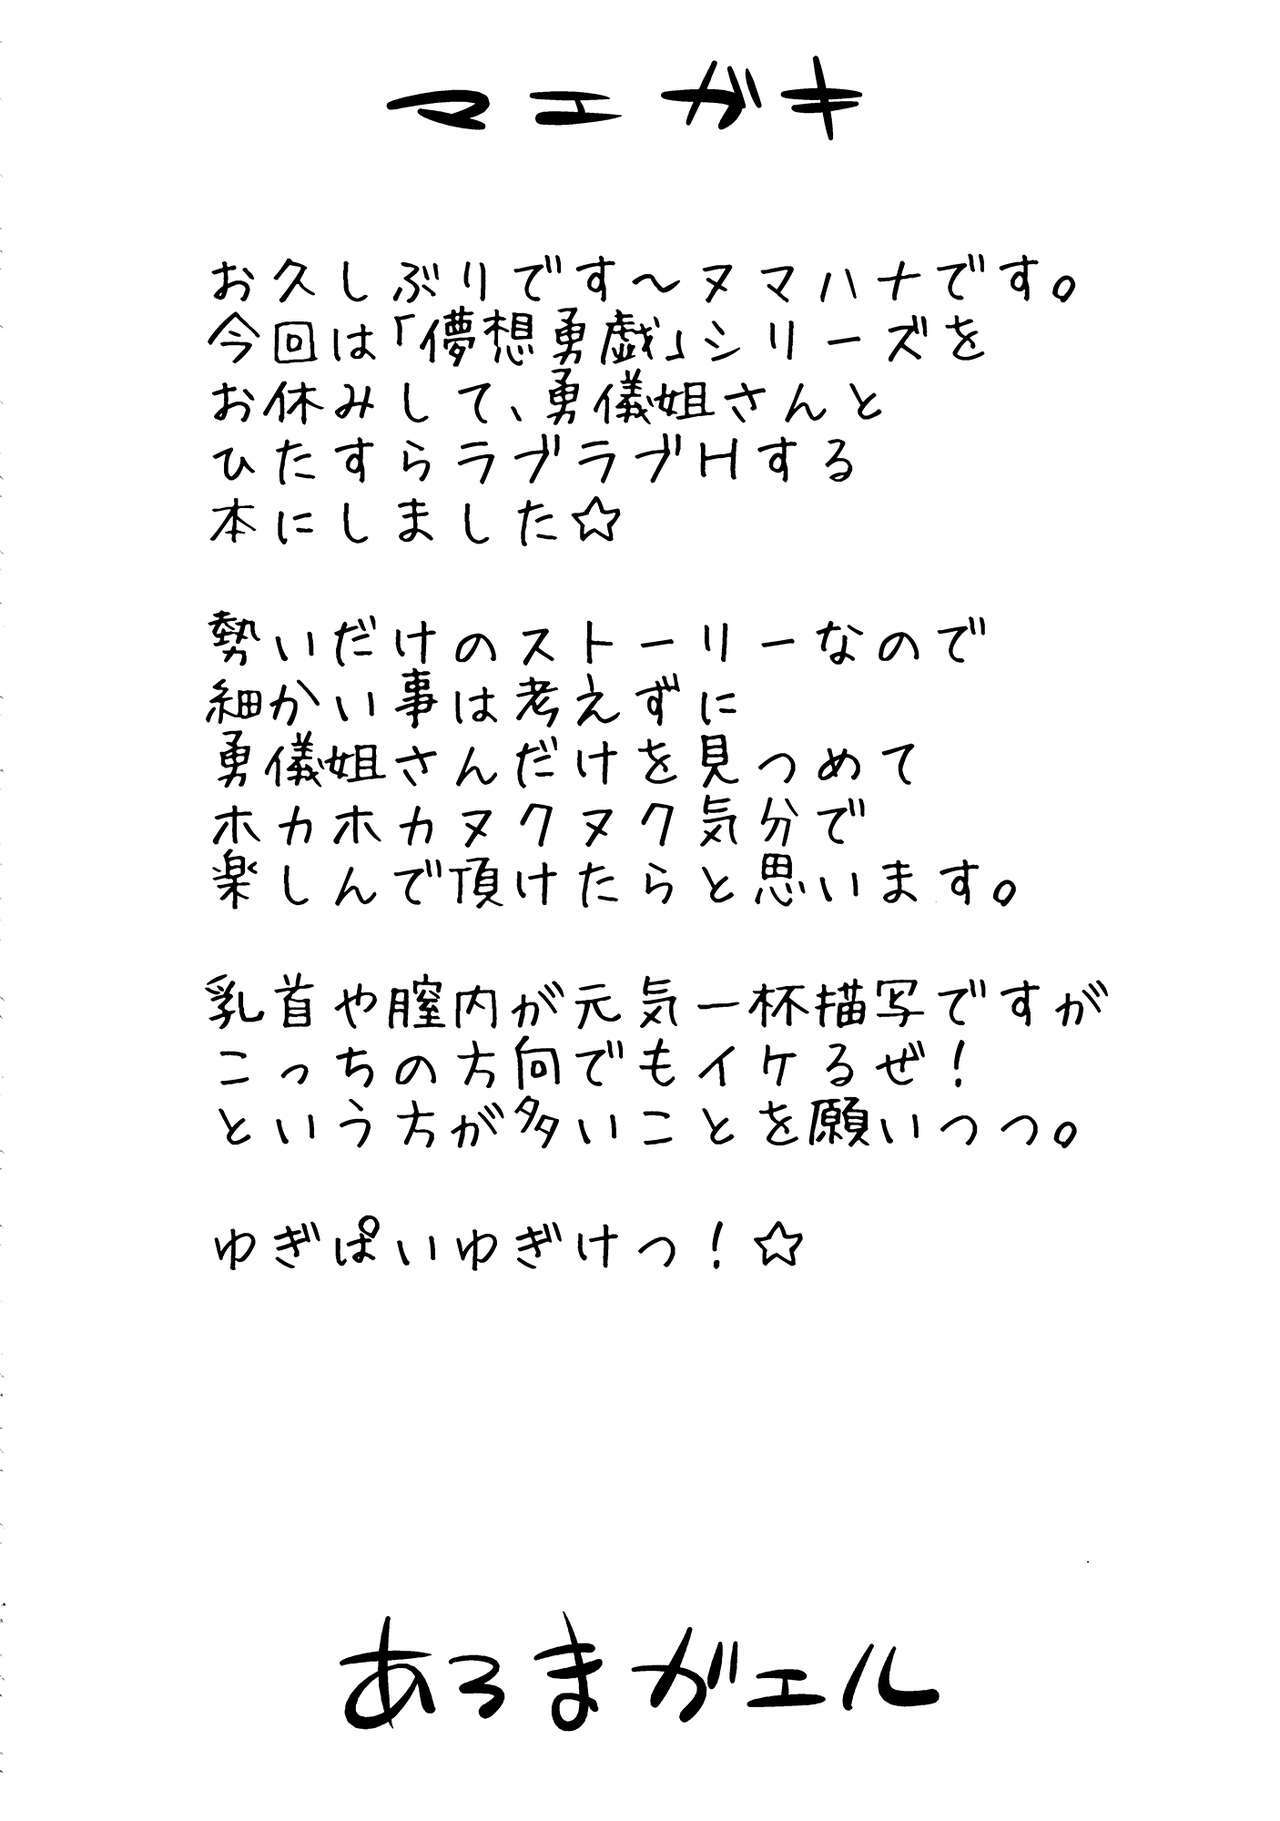 マエガキ
お久しぶりです～ヌマハナです。
今回は「儚想勇戯」シリーズを
お休みして、勇儀姐さんと
ひたすらラブラブHする
本にしました☆
勢いだけのストーリーなので
細かい事は考えずに
勇儀姐さんだけを見つめて
ホカホカヌクヌク気分で
楽しんで頂けたらと思います。
乳首や膣内が元気一杯描写ですが
こっちの方向でもイケるぜ！
という方が多いことを願いつつ。
ゆぎぱいゆぎけつ！☆
あろまがエル